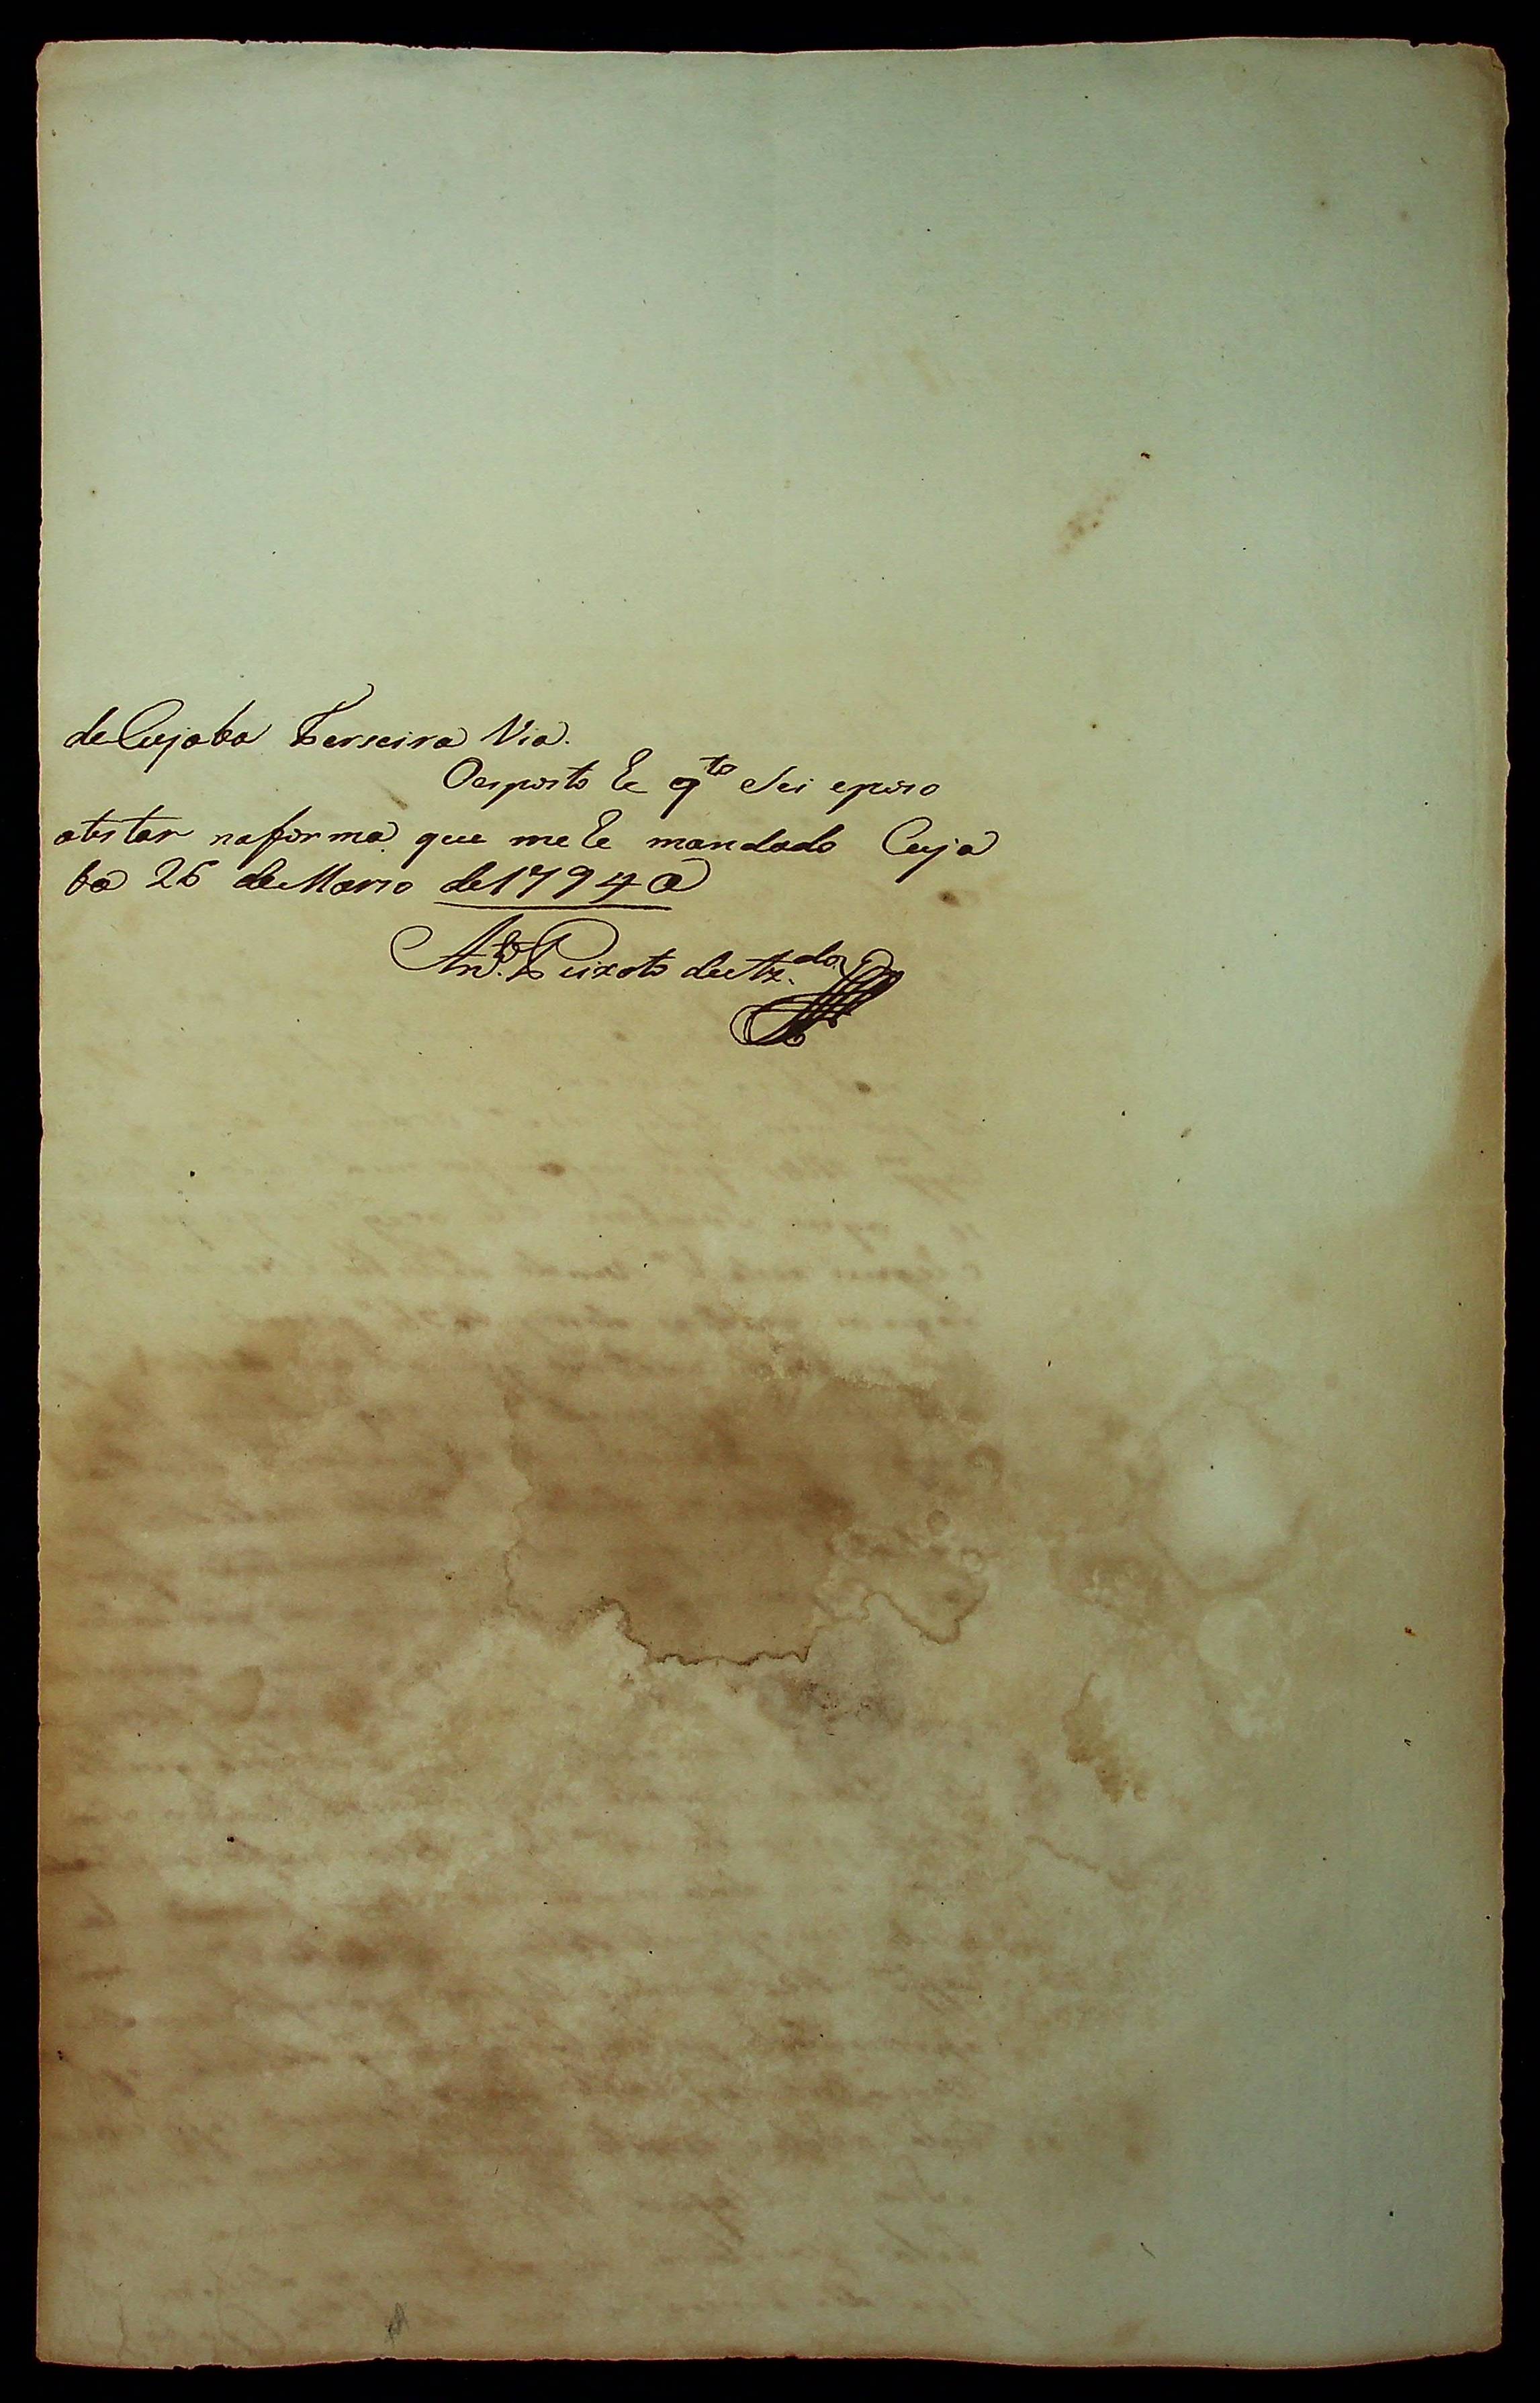 de Cujaba Terseira Via.
O esposto he q.to Sei eposso
atestar naforma que me he mandado Cuja
ba 26 de Marso de 1794 a
Ant.o Peixoto de Az.do